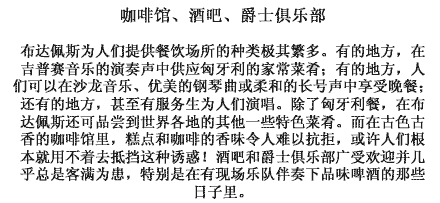 咖啡馆、酒吧、爵士俱乐部
布达佩斯为人们提供餐饮场所的种类极其繁多。有的地方，在
吉普赛音乐的演奏声中供应匈牙利的家常菜肴；有的地方，人
们可以在沙龙音乐、优美的钢琴曲或柔和的长号声中享受晚餐；
还有的地方，甚至有服务生为人们演唱。除了匈牙利餐，在布
达佩斯还可品尝到世界各地的其他一些特色菜肴。而在古色古
香的咖啡馆里，糕点和咖啡的香味令人难以抗拒，或许人们根
本就用不着去抵挡这种诱惑！酒吧和爵士俱乐部广受欢迎并几
乎总是客满为患，特别是在有现场乐队伴奏下品味啤酒的那些
日子里。